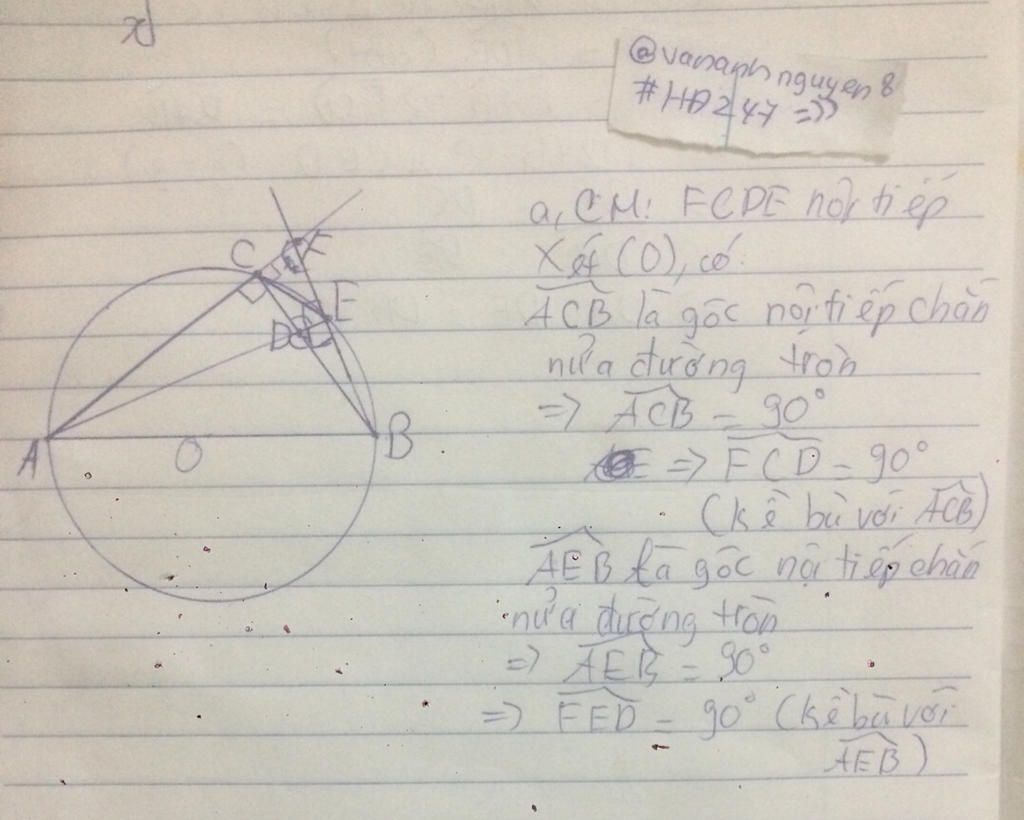 x
@vananhnguyen8
#HĐ247 =))
a, CM: FCDE nội tiếp
Xét (O), có:
ACB là góc nội tiếp chắn
nửa đường tròn
=> ACB = 90°
=> FCD = 90°
(kề bù với ACB)
AEB là góc nội tiếp chắn
nửa đường tròn
=> AEB = 90°
=> FED = 90° (kề bù với
AEB)
C F
E
D
A O B